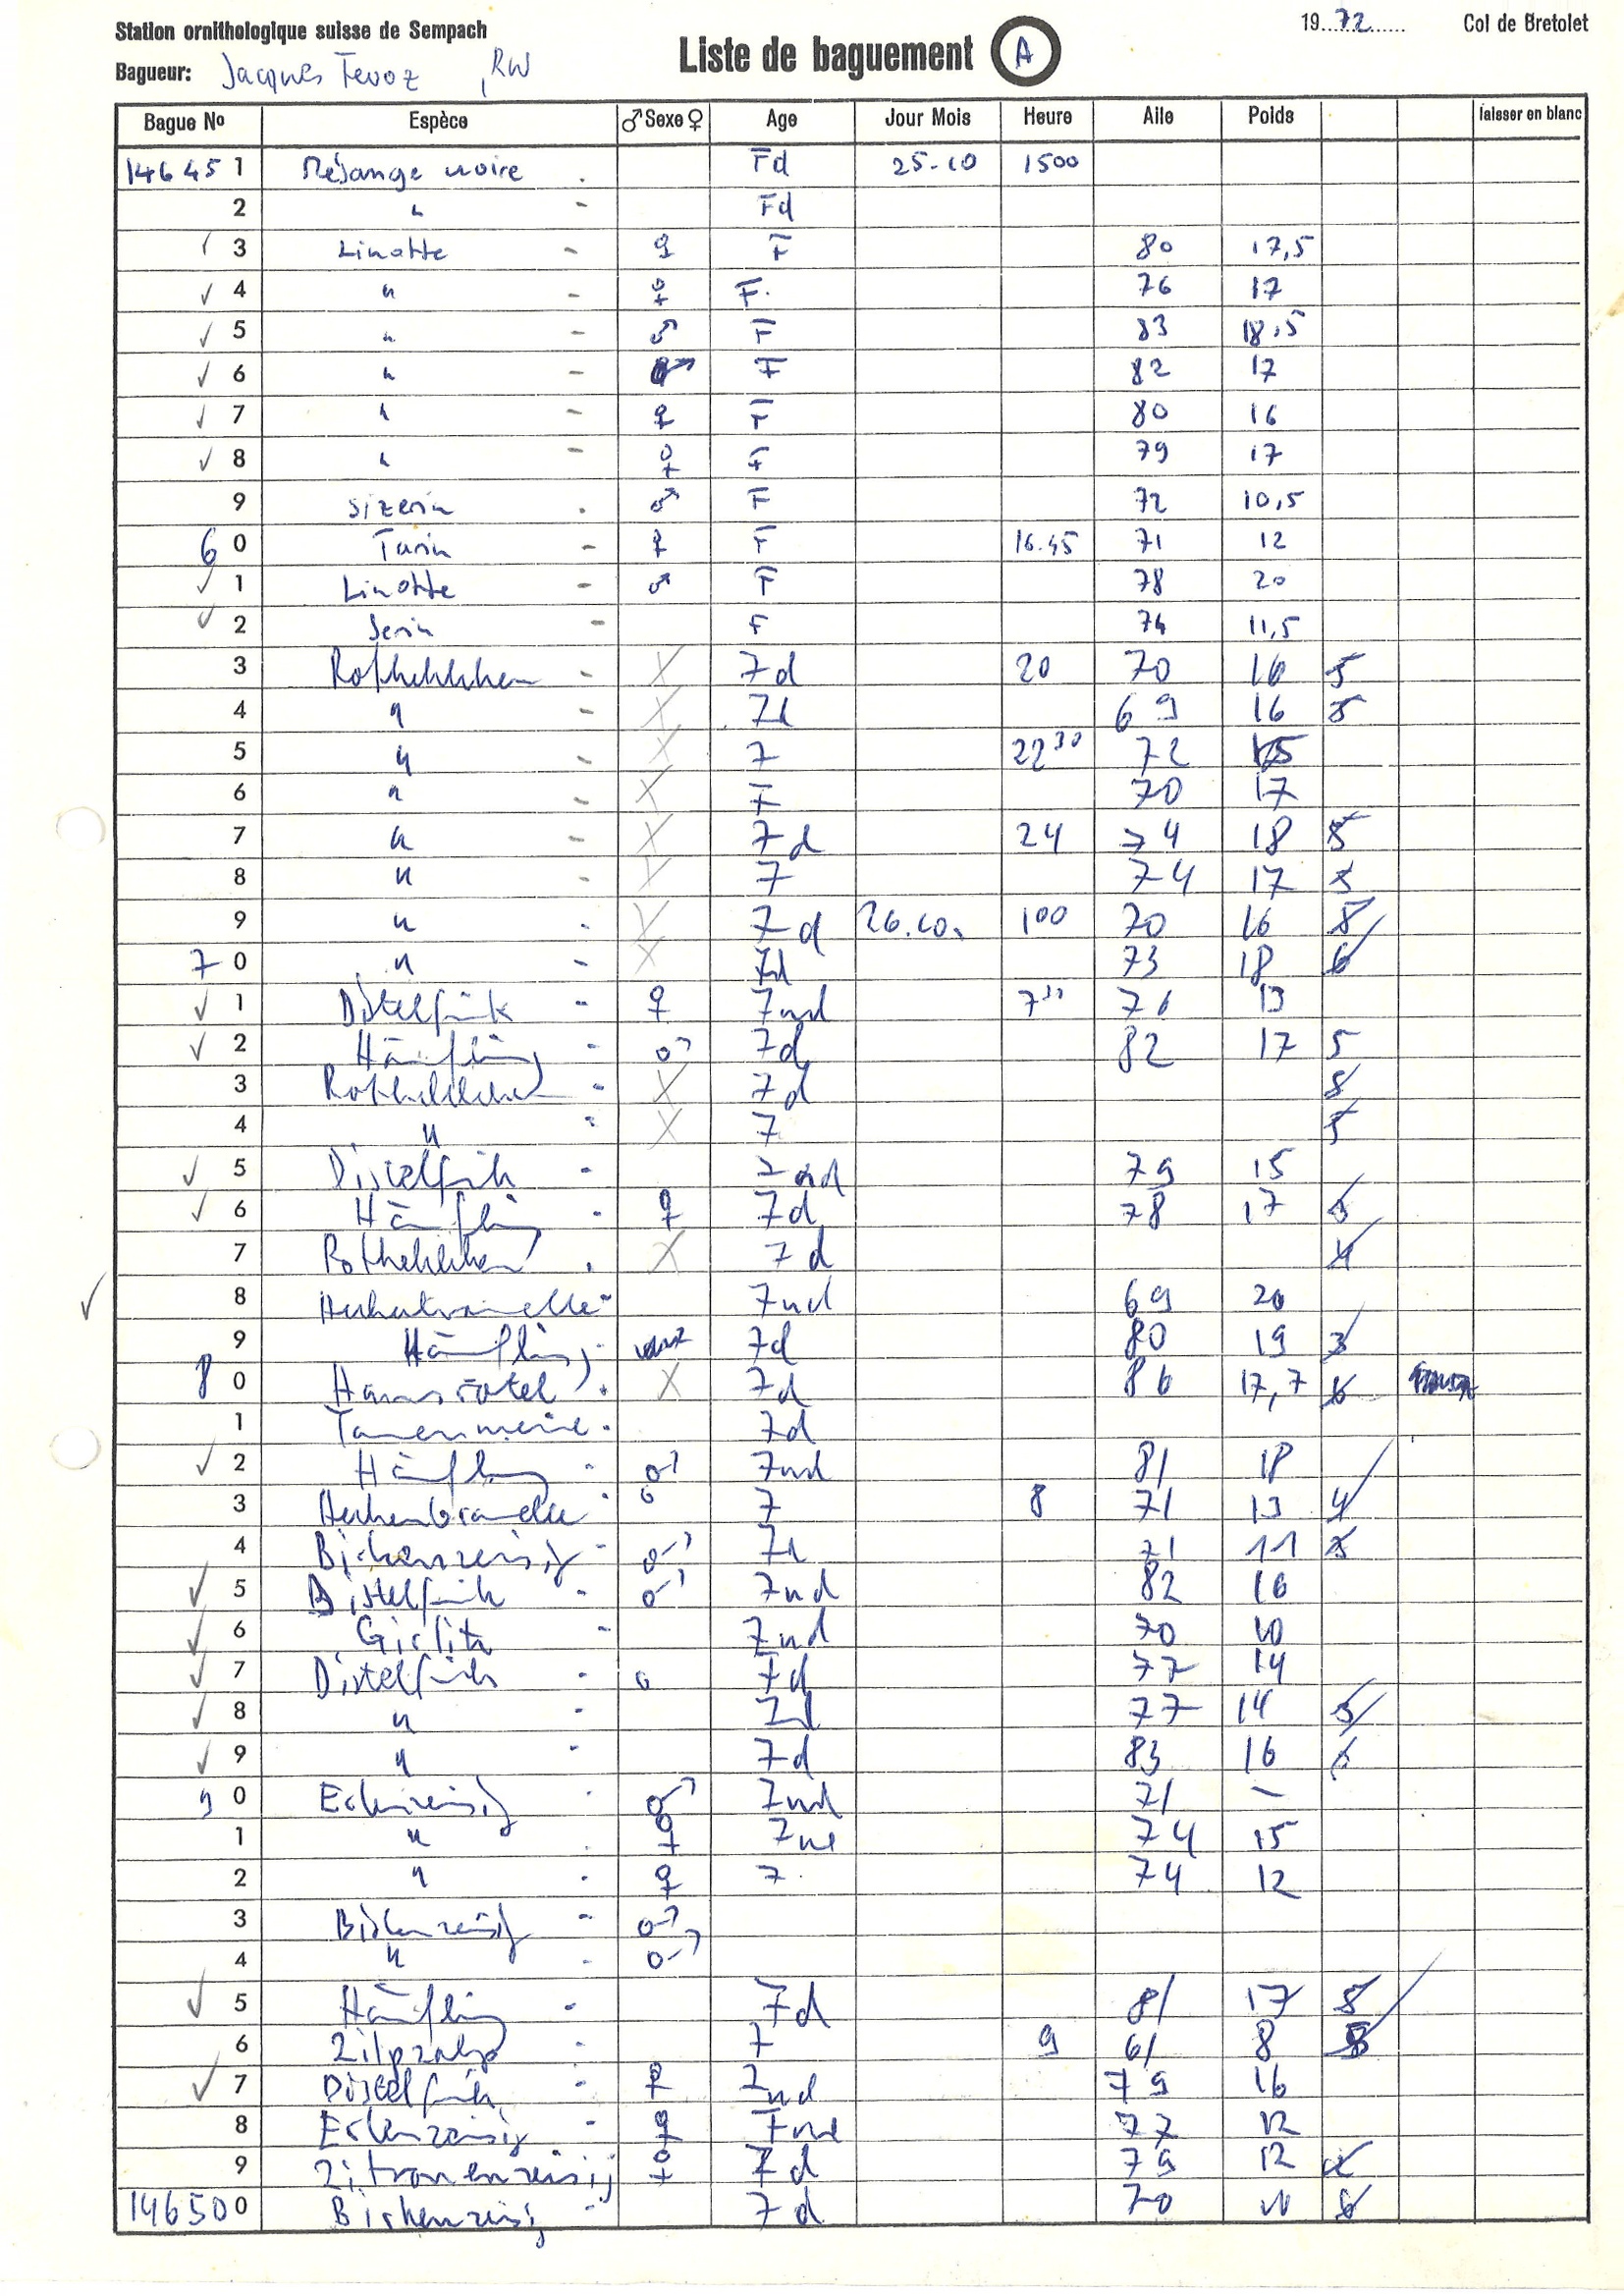 Station ornithologique suisse de Sempach
19 72 Col de Bretolet
Liste de baguement A
Bagueur: Jacques Fevoz, RW
Bague No Espèce ♂ Sexe ♀ Age Jour Mois Heure Aile Poids laisser en blanc
146451 Mésange noire Fd 25.10 1500
2 " - Fd
3 Linotte - ♀ F 80 17,5
✓ 4 " - ♀ F. 76 17
✓ 5 " - ♂ F 83 18,5
✓ 6 " - ♂ F 82 17
✓ 7 " - ♀ F 80 16
✓ 8 " - ♀ F 79 17
9 Sizerin . ♂ F 72 10,5
60 Tarin - ♀ F 16.45 71 12
✓ 1 Linotte - ♂ F 78 20
✓ 2 Serin - F 74 11,5
3 Rothkehlchen - X 7d 20 70 16 5
4 " - X 7d 69 16 5
5 " - X 7 22 30 72 15
6 " - X F 70 17
7 " - X 7d 24 74 18 5
8 " - X 7 74 17 5
9 " - X 7d 26.10. 1 00 70 16 5
70 " - X 7d 73 18 6
✓ 1 Distelfink - ♀ 7nd 7 30 76 13
✓ 2 Hänfling - ♂ 7d 82 17 5
3 Rothkehlchen - X 7d
4 " - X 7 5
✓ 5 Distelfink - 7nd 79 15
✓ 6 Hänfling - ♀ 7d 78 17 5
7 Rothkehlchen . X 7d 4
✓ 8 Heckenbraunelle - 7nd 69 20
9 Hänfling - 7d 80 19 3
80 Hausrötel . X 7d 86 17,7 6
1 Tannenmeise . 7d
✓ 2 Hänfling - ♂ 7nd 81 18
3 Heckenbraunelle - 7 8 71 13 4
4 Birkenzeisig - ♂ 7d 71 11 5
✓ 5 Distelfink - ♂ 7nd 82 16
✓ 6 Girlitz - 7nd 70 10
✓ 7 Distelfink - 7d 77 14
✓ 8 " - 7d 77 14 5
✓ 9 " - 7d 83 16
90 Erlenzeisig - ♂ 7nd 71 -
1 " . ♀ 7nd 74 15
2 " . ♀ 7 74 12
3 Birkenzeisig - ♂
4 " - ♂
✓ 5 Hänfling - 7d 81 17 5
6 Zilpzalp - 7 9 61 8
✓ 7 Distelfink - ♀ 7nd 79 16
8 Erlenzeisig - ♀ 7nd 77 12
9 Zitronenzeisig ♀ 7d 79 12
146500 Birkenzeisig - 7d 70 10